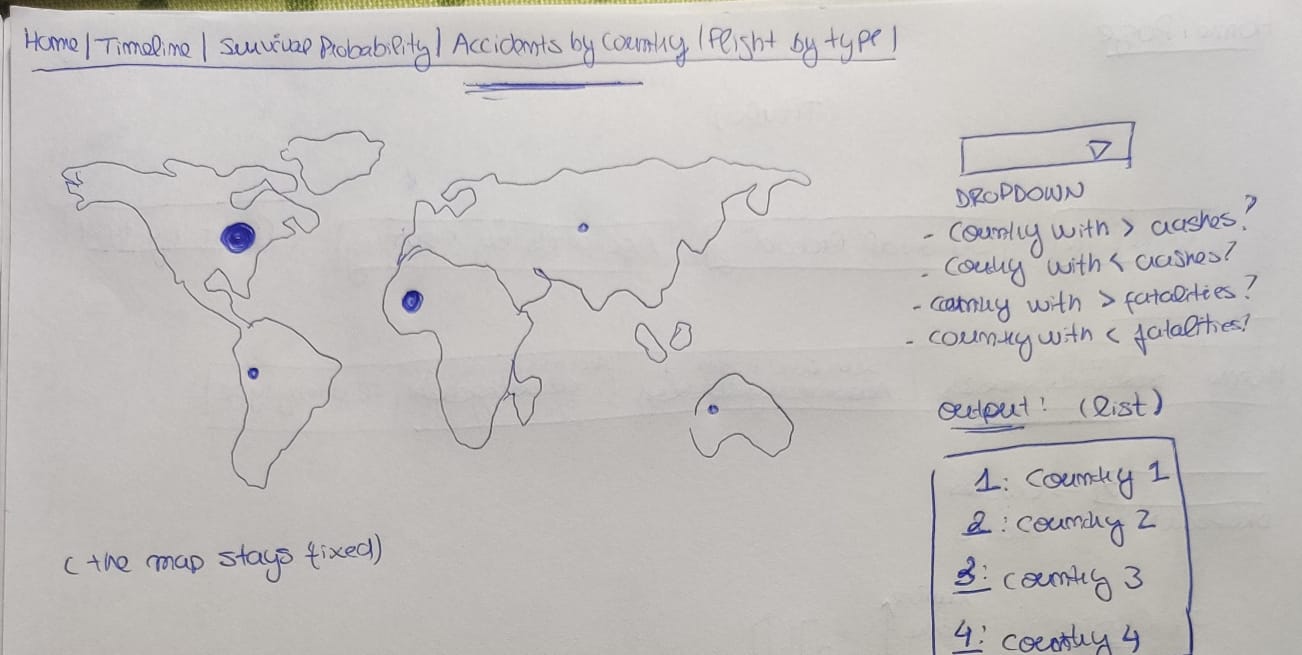 Home | Timeline | Survival Probability | Accidents by Country | Flight by type |
DROPDOWN
- Country with > crashes?
- Country with < crashes?
- country with > fatalities?
- country with < fatalities?
output: (list)
1: Country 1
2: country 2
3: country 3
4: country 4
(the map stays fixed)